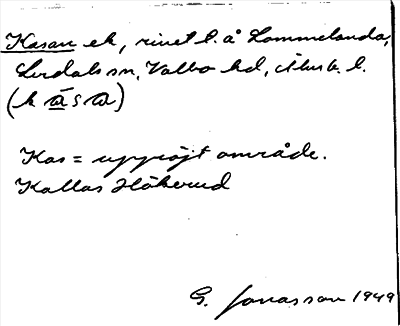 Kasan ek, rivet l. å Lommelanda,
Lerdals sn, Valbo hd, Älvsb. l.
(kása)
Kas = uppröjt område.
Kallas Håkerud
G. Jonasson 1949